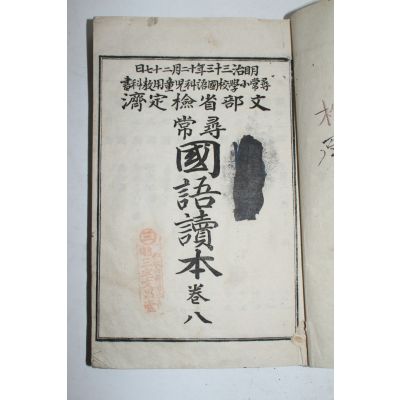 明治三十三年十二月二十七日
尋常小學校國語科兒童用教科書
文部省檢定濟
尋常
國語讀本 卷八